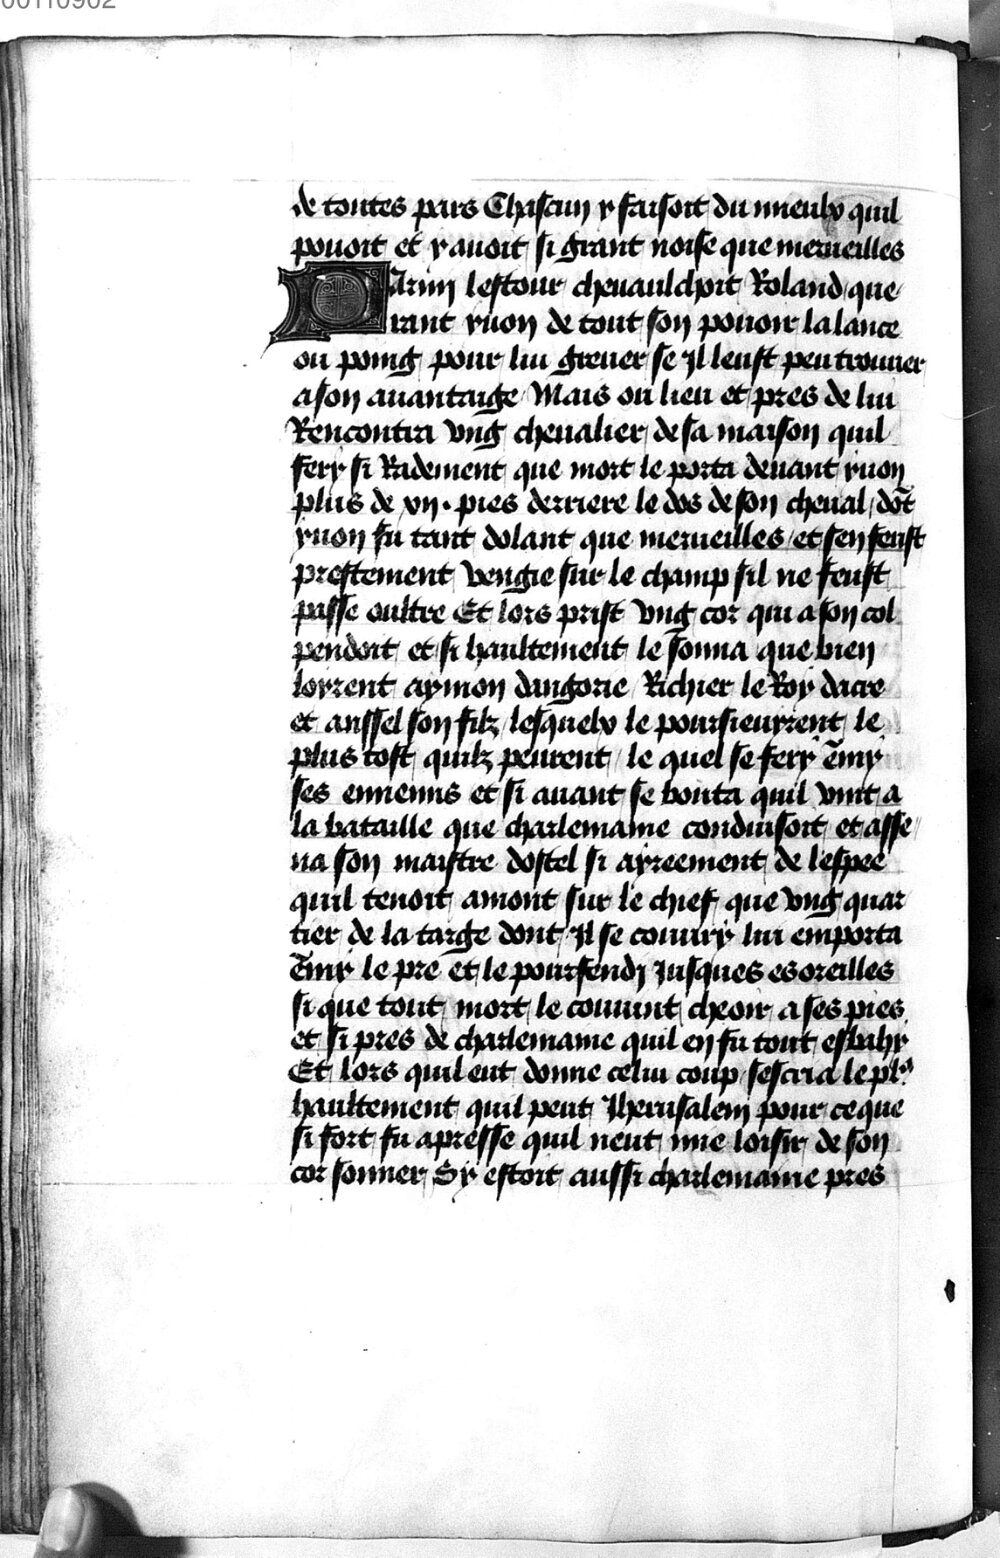 00110902
de toutes pars Chascun y faisoit du mieulx quil
pouoit et y auoit si grant noise que merueilles
Parmy lestour cheuaulchoit Roland que
rant yuon de tout son pouoir la lance
ou poing pour lui greuer se Il leust peu trouuer
a son auantaige Mais ou lieu et pres de lui
Rencontra vng cheualier de sa maison quil
fery si Radement que mort le porta deuant yuon
plus de vij. pies derriere le dos de son cheual dōt
yuon fu tant dolant que merueilles et sen feust
prestement vengie sur le champ sil ne feust
passe oultre Et lors prist vng cor qui a son col
pendoit et si haultement le sonna que bien
loyrent aymon dangorie Richier le Roy dacre
et anssel son filz lesquelx le poursieuyrent le
plus tost quilz peurent le quel se fery ēmy
ses ennemis et si auant se bouta quil vint a
la bataille que charlemaine conduisoit et asse
na son maistre dostel si ayreement de lespee
quil tenoit amont sur le chief que vng quar
tier de la targe dont Il se couury lui emporta
ēmy le pre et le pourfendj Jusques es oreilles
si que tout mort le conuint cheoir a ses pies
et si pres de charlemaine quil en fu tout esbahy
Et lors quil eut donne celui coup sescria le pl⁹
haultement quil peut Jherusalem pour ce que
si fort fu apresse quil neut mie loisir de son
cor sonner Sy estoit aussi charlemaine pres